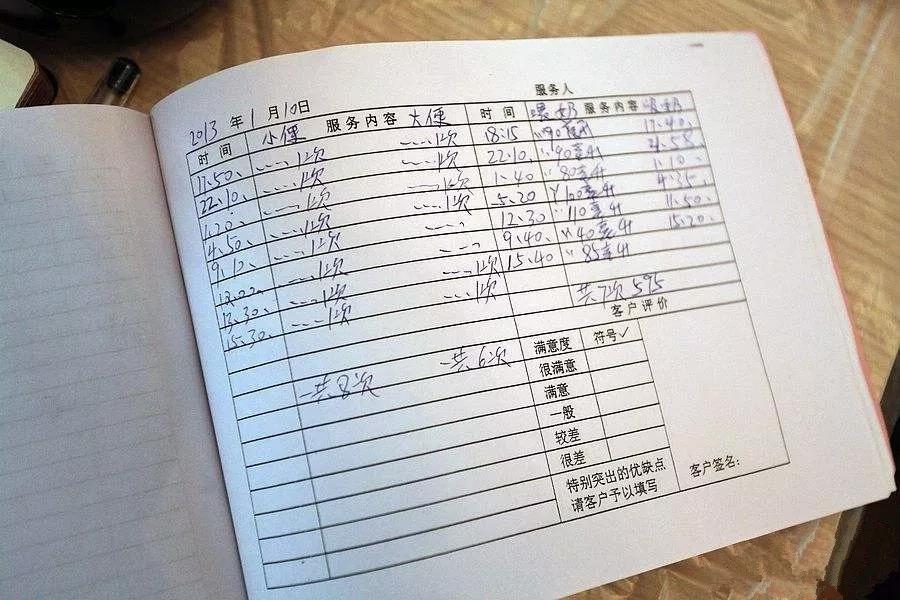 服务人
2013 年 1 月 10 日
时间 小便 服务内容 大便 时间 喂奶 服务内容 吸奶
17、50、 ﹍﹍1次 ﹍﹍1次 18:15 〃90毫升 17:40、
22、10、 ﹍﹍1次 ﹍﹍1次 22、10、 〃90毫升
1、20、 ﹍﹍1次 ﹍﹍1次 1、40 〃80毫升 1:10、
4、50、 ﹍﹍1次 ﹍﹍1次 5、20 〃100毫升 4:35、
9、10、 ﹍﹍1次 12、30 〃110毫升 11、50、
﹍﹍1次 9、40、 〃40毫升 15:20、
13、30、 ﹍﹍1次 ﹍﹍1次 15、40 〃85毫升
15、30、 ﹍﹍1次 ﹍﹍1次
共7次 595
客户评价
满意度 符号✓
一共8次 一共6次
很满意
满意
一般
较差
很差
特别突出的优缺点
请客户予以填写
客户签名: